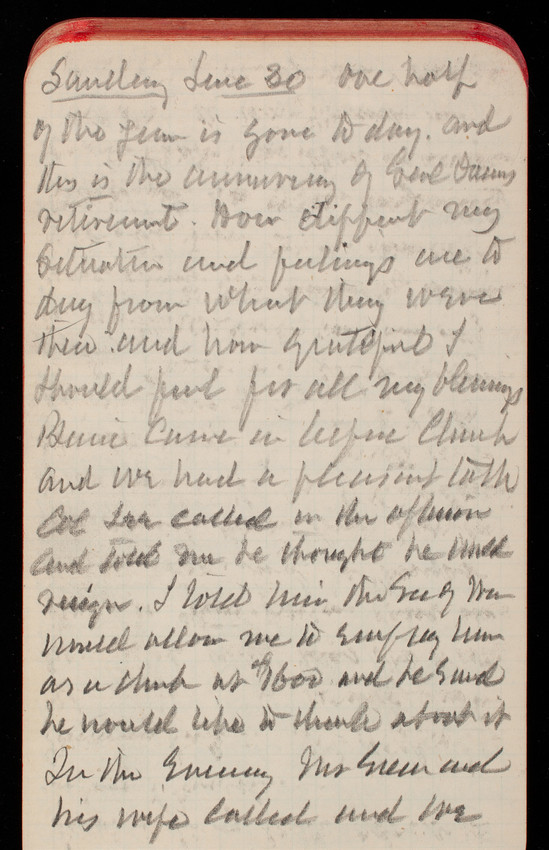 Sunday June 30 One half
of the year is gone to day. and
this is the anniversary of Genl
retirement. How different my
situation and feelings are to
day from what they were
then and how grateful I
should feel for all my blessings
came in before Church
and we had a pleasant talk
Col Lee called in the afternoon
and told me he thought he would
resign. I told him the Secy War
would allow me to employ him
as a clerk at $1600 and he said
he would like to think about it
In the Evening Mr Green and
his wife called and we